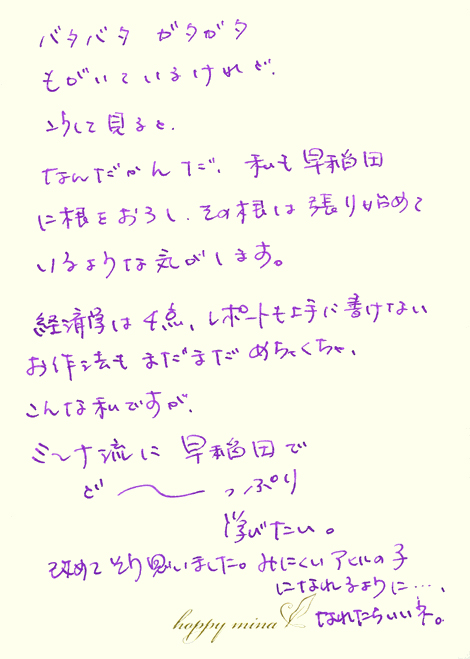 バタバタ ガタガタ
もがいているけれど、
こうして見ると、
なんだかんだ、私も早稲田
に根をおろし、その根は張り始めて
いるような気がします。
経済学は4点、レポートも上手に書けない
お作法もまだまだめちゃくちゃ、
こんな私ですが、
ミーナ流に 早稲田で
ど〜っぷり
学びたい。
改めてそう思いました。みにくいアヒルの子
になれるように…、
なれたらいいネ。
happy mina